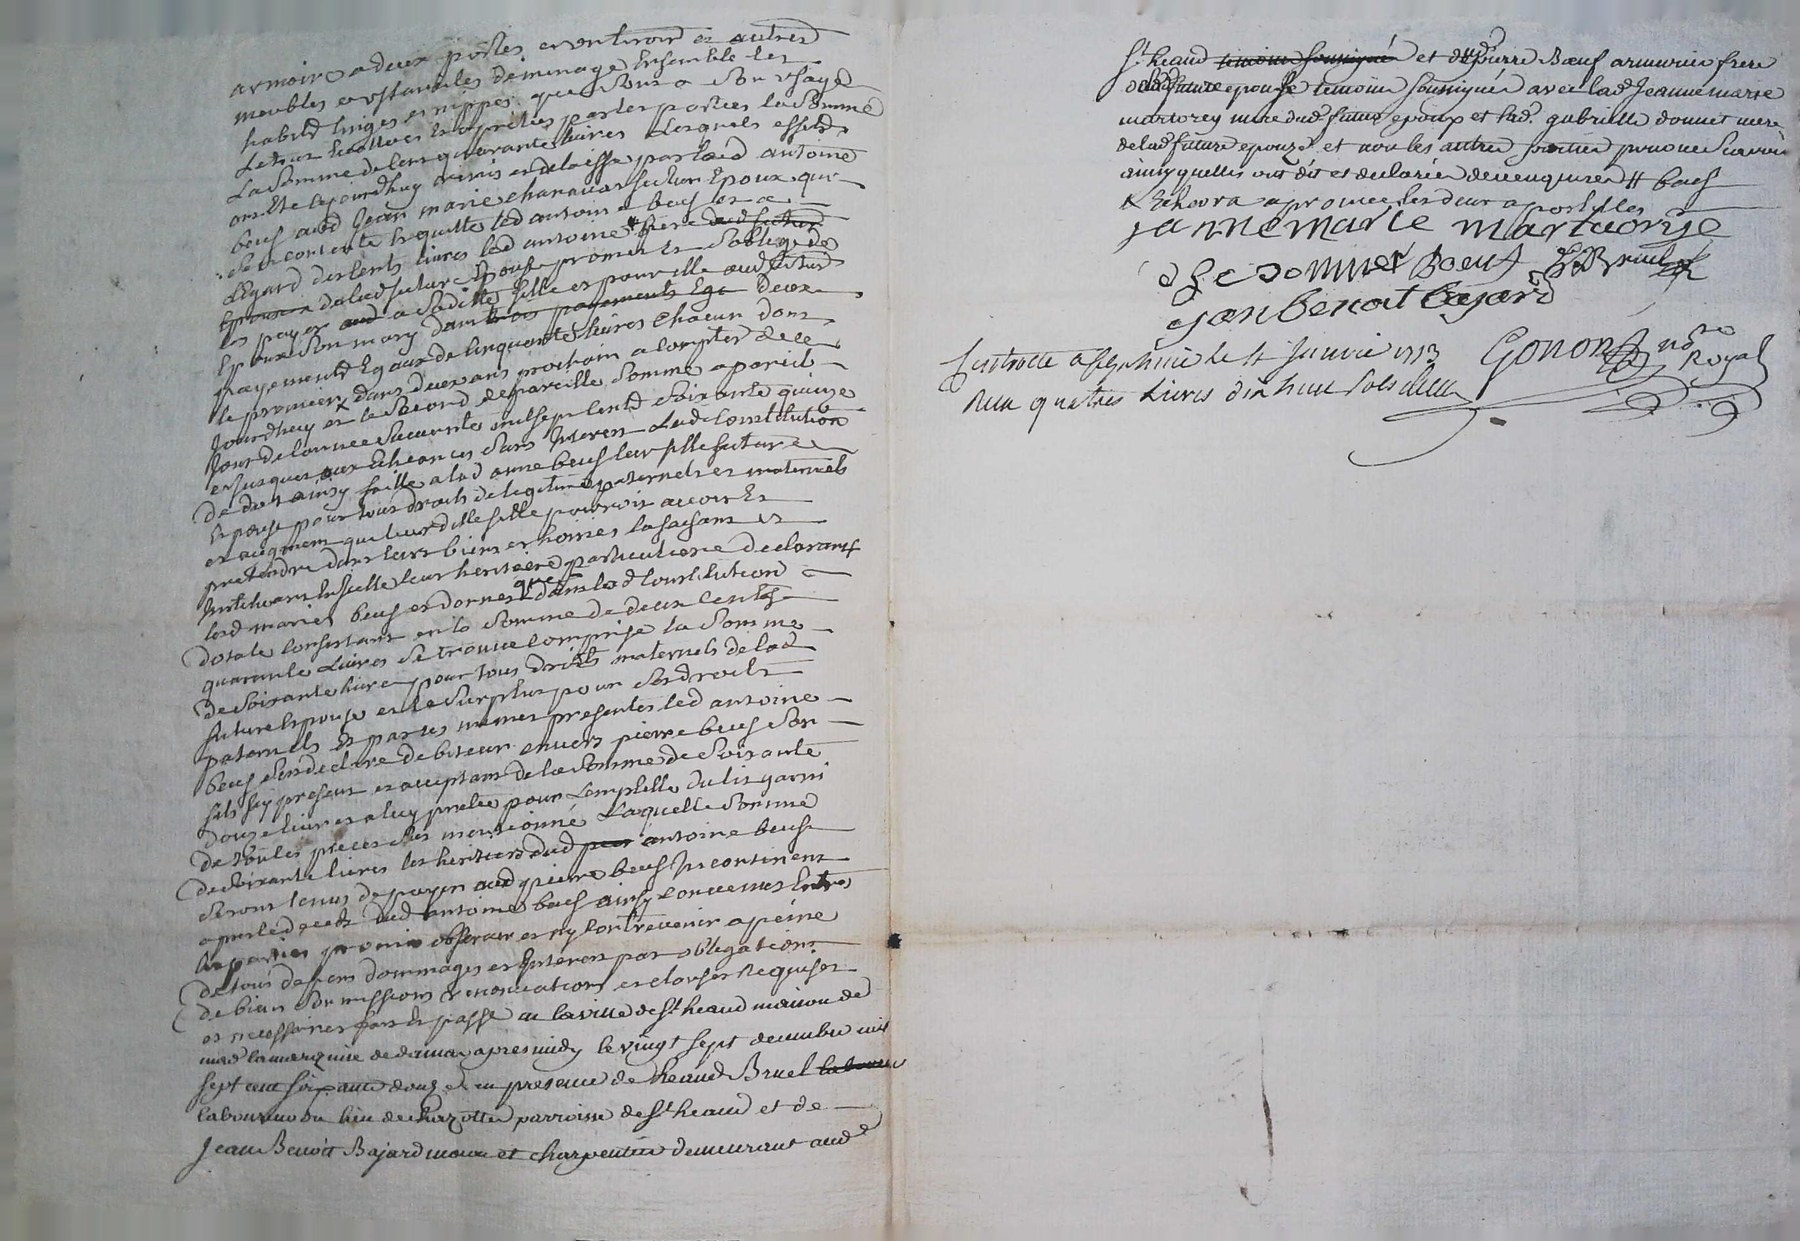 armoire a deux portes un tiroir et autres
meubles et ustancilles de menage Ensemble les
habits linges et nippes que sont a son usage
le tout Evalué Entre les parties la Somme
La Somme de Cent quarante livres Lesquels effets
ont Eté cejourdhuy remis et delaissé par led antoine
beuf aud Jean marie chanavas futur Epoux qui
Sen contente Et quitte led antoine beuf Et a
LEgard des Cents livres led antoine pere
de lad future Epouse promet Et Soblige de
les payer a Sadite fille et pour elle aud futur
Epoux Son mary dans trois payements Ege Deux
payements Egaux de Cinquante livres chacun dont
le premier dans deux ans prochain a compter de ce
Jourdhuy et le Second de pareille Somme a pareil
Jour de lannee Suivante mil sept Cents Soixante quinze
et jusques aux Echeances Sans Interest Lad Constitution
De dot ainsy faitte a lad anne beuf leur fille future
Epouse pour tous droits de legitime paternels et maternels
et augment que leurditte fille pourroit avoir Et
pretendre dans leurs biens et hoiries la faisant et
Instituant Icelle leur heritiere particuliere declarant
led mariés beuf et donnet que dans lad Constitution
dotale Consistant en la Somme de deux Cents
quarante Livres Se trouve Comprise la Somme
de Soixante livres pour tous droits maternels de lad
future Epouse et le Surplus pour Ses droits
paternels Et par ses mêmes presentes led antoine
beuf Sest declaré debiteur envers pierre beuf Son
fils Icy present et acceptant de la Somme de Soixante
Douze livres a luy pretée pour Lemplette du lit garni
de toutes pieces Cy mentionné Laquelle Somme
de Soixante livres les heritiers dud pour antoine beuf
Seront tenus de payer aud pierre beuf Incontinent
apres le deced dud antoine beuf ainsy Convenu Entre
les parties promis observer et ny Contrevenir a peine
de tous depens dommages et Interest par obligations
de biens Soumissions renonciations et clauses Requises
et necessaires fait Et passé en la ville de St heand maison de
made la marquise de damas apres midy le vingt sept decembre mil
sept cent soixante douze en presence de heand Bruel laboureur
laboureur du lieu de chazotte parroisse de St heand et de
Jean Benoit Bajard macon et charpentier demeurant aud
St heand temoins soussignés et de pierre Bœuf armurier frere
de la future epouse temoins soussignés avec lad Jeanne marie
martorey mere dud futur epoux et lad. gabrielle donnet mere
de lad future epouze et non les autres parties pour ne scavoir
ainsy quelles ont dit et declarée de ce enquises # beuf
approuvé les deux apostilles
janne marie martuorye
Bœuf h Bruel
jean benoit bajard
Controllé a St le 4 Janvier 1773
Reçu quatres Livres dix huit sols
Gonon no.re Royal